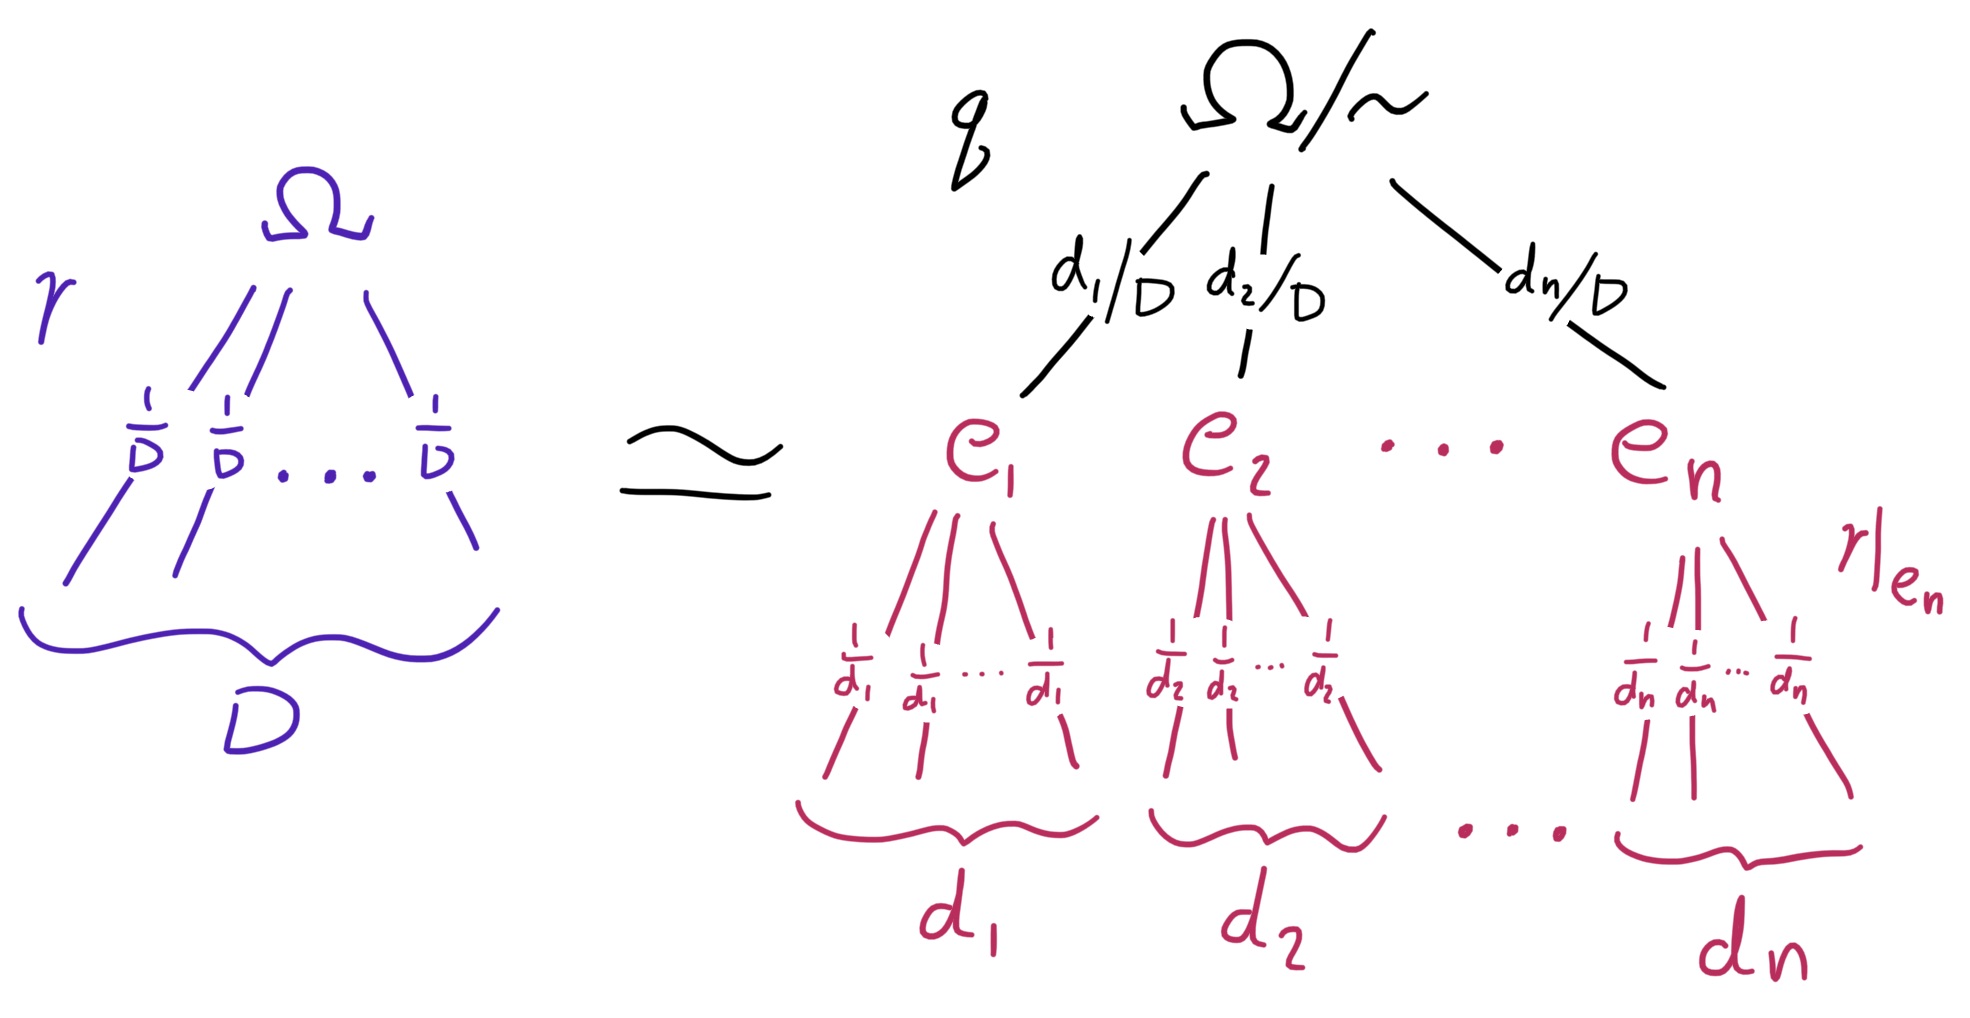 r
Ω
1/D 1/D ... 1/D
D
≅
q
Ω/~
d₁/D d₂/D dₙ/D
e₁ e₂ ... eₙ
r|eₙ
1/d₁ 1/d₁ ... 1/d₁ 1/d₂ 1/d₂ ... 1/d₂ 1/dₙ 1/dₙ ... 1/dₙ
d₁ d₂ ... dₙ